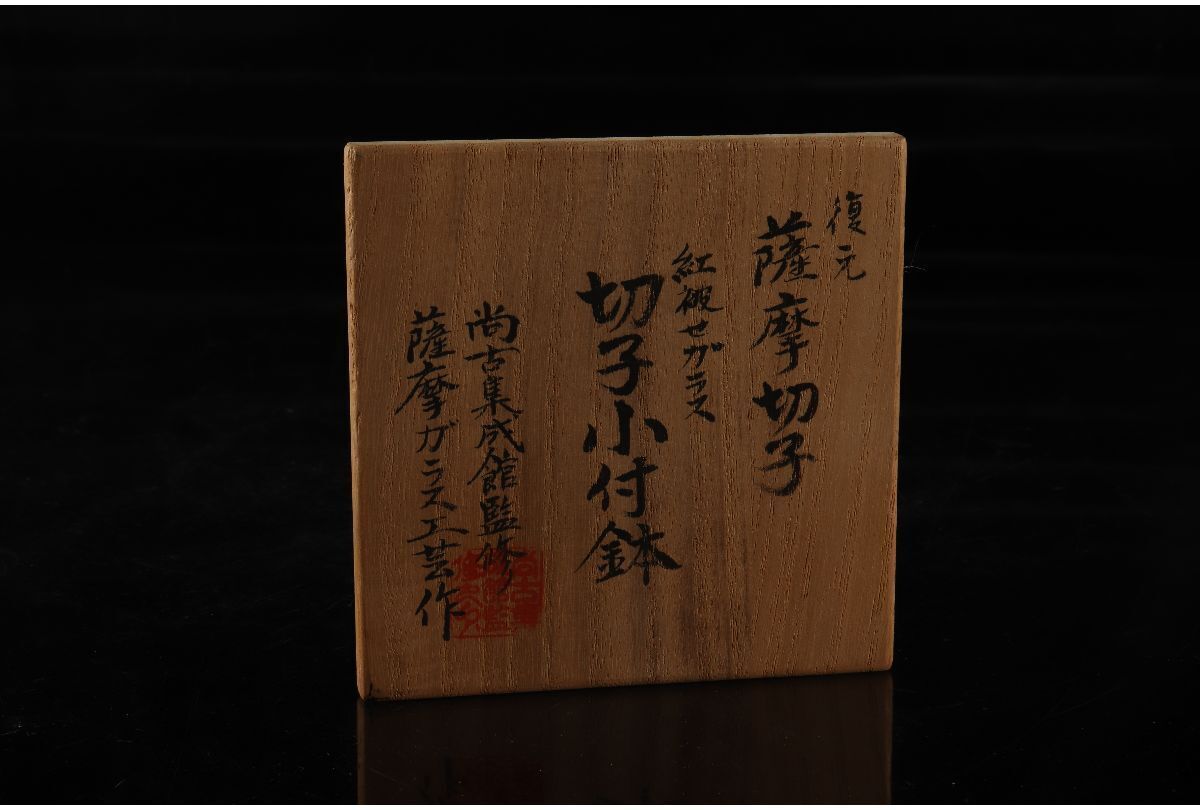 復元
薩摩切子
紅被せガラス
切子小付鉢
尚古集成館監修
薩摩ガラス工芸作